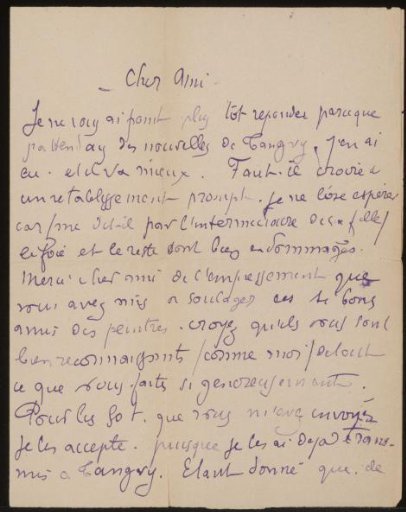 Cher Ami.
Je ne vous ai point plus tôt repondu parceque
j'attenday des nouvelles de Tanguy, j'en ai
eu. et il va mieux. Faut-il croire a
un retablissement prompt. je ne l'ose espérer
car, me dit il par l'intermediaire de sa fille,
le foie et le reste sont bien endommagés.
Merci cher ami de l'empressement que
vous avez mis a soulager ces si bons
amis des peintres. croyez qu'ils vous sont
bien reconnaissants, comme moi, de tout
ce que vous faites si genereusement.
Pour les 50 f. que vous m'avez envoyés
je les accepte. puisque je les ai deja trans-
mis a Tanguy. Etant donné que de